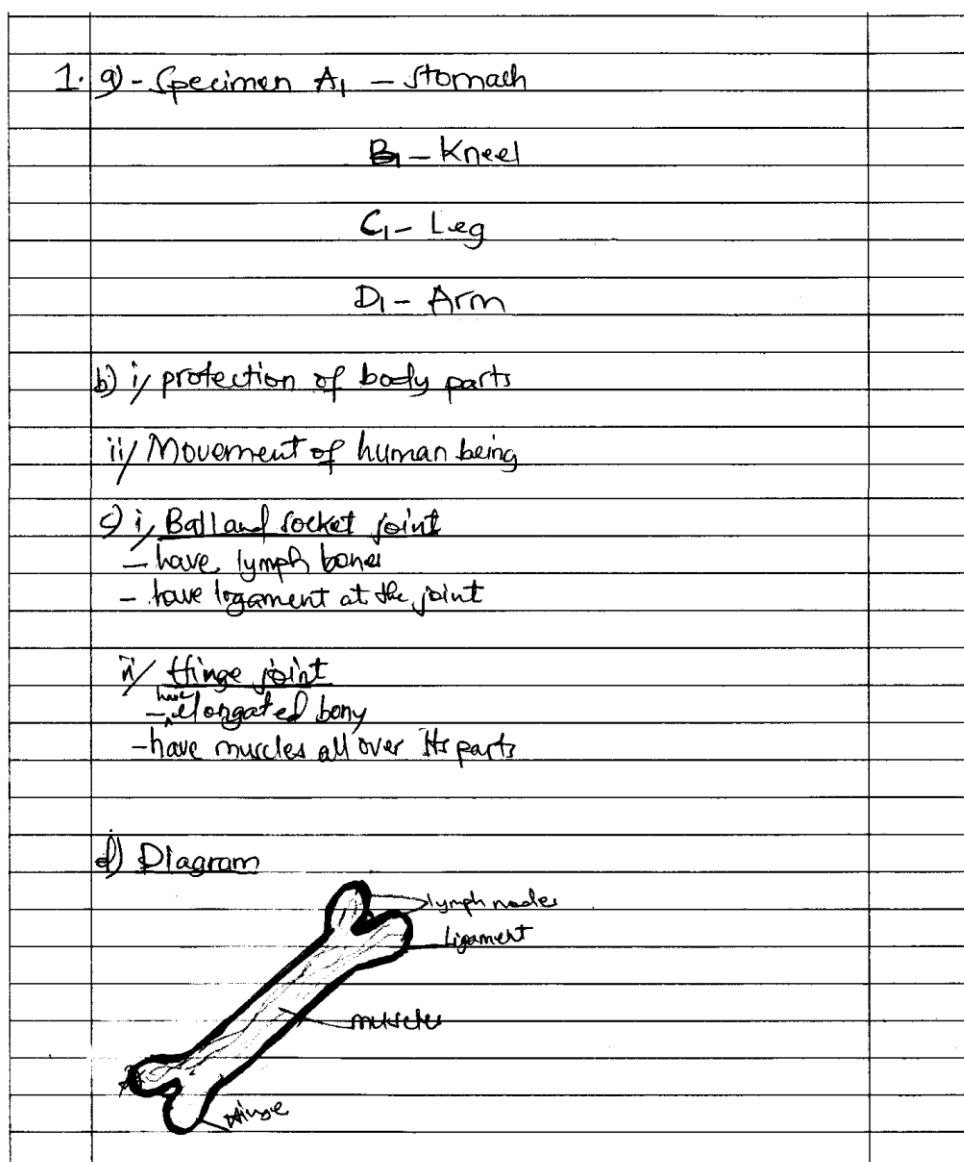 1. a) - Specimen A1 - Stomach
B1 - Kneel
C1 - Leg
D1 - Arm
b) i/ protection of body parts
ii/ Movement of human being
c) i/ Ball and socket joint
- have lymph bones
- have logament at the joint
ii/ Hinge joint
- have elongated bony
- have muscles all over its parts
d) Diagram
lymph nodes
Ligament
muscles
Hinge